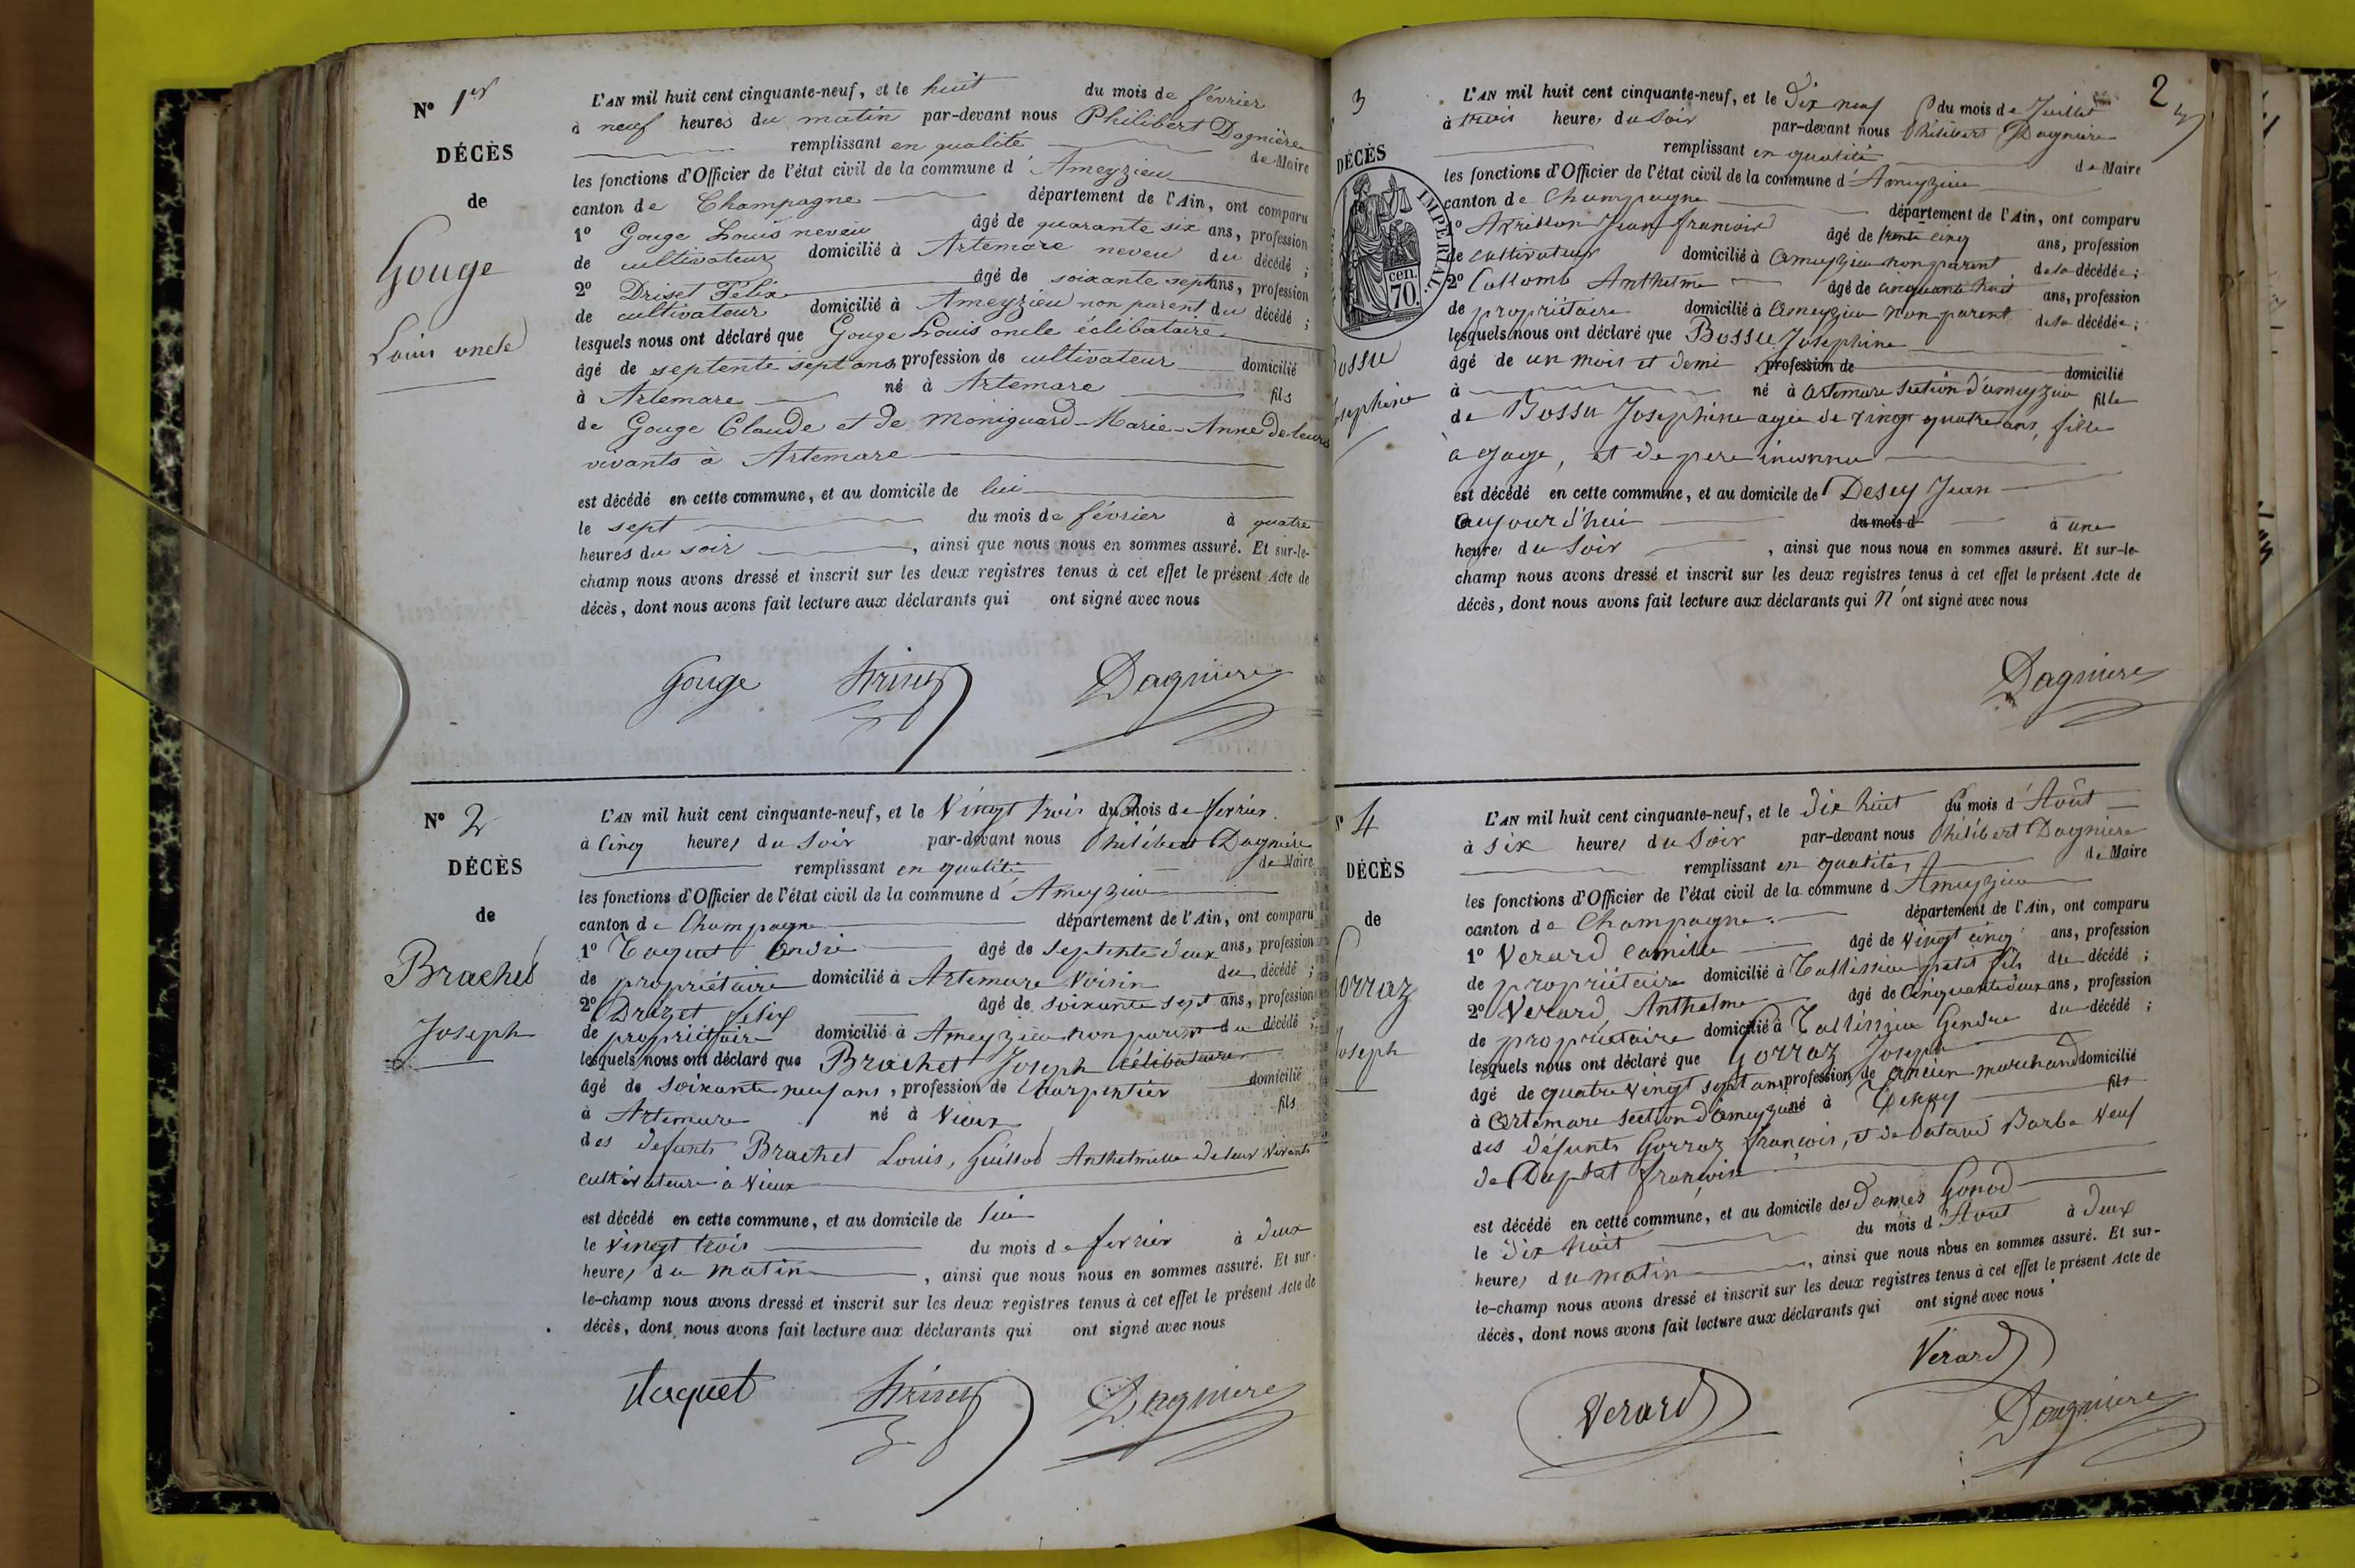 N° 1er
DÉCÈS
de
Gouge
Louis oncle
L'AN mil huit cent cinquante-neuf, et le huit du mois de février
à neuf heures du matin par-devant nous Philibert Dagnière
remplissant en qualité de Maire
les fonctions d'Officier de l'état civil de la commune d'Ameyzieu
canton de Champagne département de l'Ain, ont comparu
1° Gouge Louis neveu âgé de quarante six ans, profession
de cultivateur domicilié à Artemare neveu du décédé ;
2° Driset Félix âgé de soixante sept ans, profession
de cultivateur domicilié à Ameyzieu non parent du décédé ;
lesquels nous ont déclaré que Gouge Louis oncle célibataire
âgé de septente sept ans, profession de cultivateur domicilié
à Artemare né à Artemare fils
de Gouge Claude et de Moniguard Marie-Anne de leurs
vivants à Artemare
est décédé en cette commune, et au domicile de lui
le sept du mois de février à quatre
heures du soir , ainsi que nous nous en sommes assuré. Et sur-le-
champ nous avons dressé et inscrit sur les deux registres tenus à cet effet le présent Acte de
décès, dont nous avons fait lecture aux déclarants qui ont signé avec nous
Gouge Dagniere
N° 2
DÉCÈS
de
Brachet
Joseph
L'AN mil huit cent cinquante-neuf, et le Vingt trois du mois de fevrier.
à Cinq heures du Soir par-devant nous Philibert Dagnière
remplissant en qualité de Maire
les fonctions d'Officier de l'état civil de la commune d'Ameyzieu
canton de Champagne département de l'Ain, ont comparu
1° Taquet André âgé de septente deux ans, profession
de propriétaire domicilié à Artemare Voisin du décédé ;
2° Drizet felix âgé de soixante sept ans, profession
de propriétaire domicilié à Ameyzieu non parent du décédé ;
lesquels nous ont déclaré que Brachet Joseph célibataire
âgé de soixante neuf ans, profession de Charpentier domicilié
à Artemare né à Vieux fils
des defunts Brachet Louis, Guillod Anthelmette de leur vivants
cultivateurs à Vieux
est décédé en cette commune, et au domicile de lui
le Vingt trois du mois de fevrier à deux
heures du matin , ainsi que nous nous en sommes assuré. Et sur-
le-champ nous avons dressé et inscrit sur les deux registres tenus à cet effet le présent Acte de
décès, dont nous avons fait lecture aux déclarants qui ont signé avec nous
Taquet Dagniere
2
3
DÉCÈS
IMPÉRIAL.
cen.
70.
Bossu
Josephine
L'AN mil huit cent cinquante-neuf, et le Dix neuf du mois de Juillet
à trois heures du Soir par-devant nous Philibert Dagniere
remplissant en qualité de Maire
les fonctions d'Officier de l'état civil de la commune d'Ameyzieu
canton de Champagne département de l'Ain, ont comparu
1° Jean francois âgé de trente cinq ans, profession
de cultivateur domicilié à Ameyzieu non parent de la décédée ;
2° Collomb Anthelme âgé de cinquante huit ans, profession
de propriétaire domicilié à Ameyzieu non parent de la décédée ;
lesquels nous ont déclaré que Bossu Josephine
âgé de un mois et demi profession de domicilié
à né à Artemare section d'ameyzieu fille
de Bossu Josephine agée de vingt quatre ans, fille
à gage, et de pere inconnu
est décédé en cette commune, et au domicile de Desey Jean
aujourd'hui du mois d à une
heure du Soir , ainsi que nous nous en sommes assuré. Et sur-le-
champ nous avons dressé et inscrit sur les deux registres tenus à cet effet le présent Acte de
décès, dont nous avons fait lecture aux déclarants qui N'ont signé avec nous
Dagniere
N° 4
DÉCÈS
de
Gorraz
Joseph
L'AN mil huit cent cinquante-neuf, et le Dix huit du mois d'Août
à six heures du Soir par-devant nous Philibert Dagniere
remplissant en qualité de Maire
les fonctions d'Officier de l'état civil de la commune d'Ameyzieu
canton de Champagne département de l'Ain, ont comparu
1° Verard Camille âgé de vingt cinq ans, profession
de propriétaire domicilié à Tallissieu petit fils du décédé ;
2° Verard Anthelme âgé de Cinquante deux ans, profession
de propriétaire domicilié à Tallissieu Gendre du décédé ;
lesquels nous ont déclaré que Gorraz Joseph
âgé de quatre vingt sept ans profession de ancien marchand domicilié
à Artemare section d'ameyzieu né à fils
des défunts Gorraz françois, et de Barbe Veuf
de françoise
est décédé en cette commune, et au domicile des dames Gonod
le Dix huit du mois d'Aout à deux
heures du matin , ainsi que nous nous en sommes assuré. Et sur-
le-champ nous avons dressé et inscrit sur les deux registres tenus à cet effet le présent Acte de
décès, dont nous avons fait lecture aux déclarants qui ont signé avec nous
Verard
Verard
Dagniere